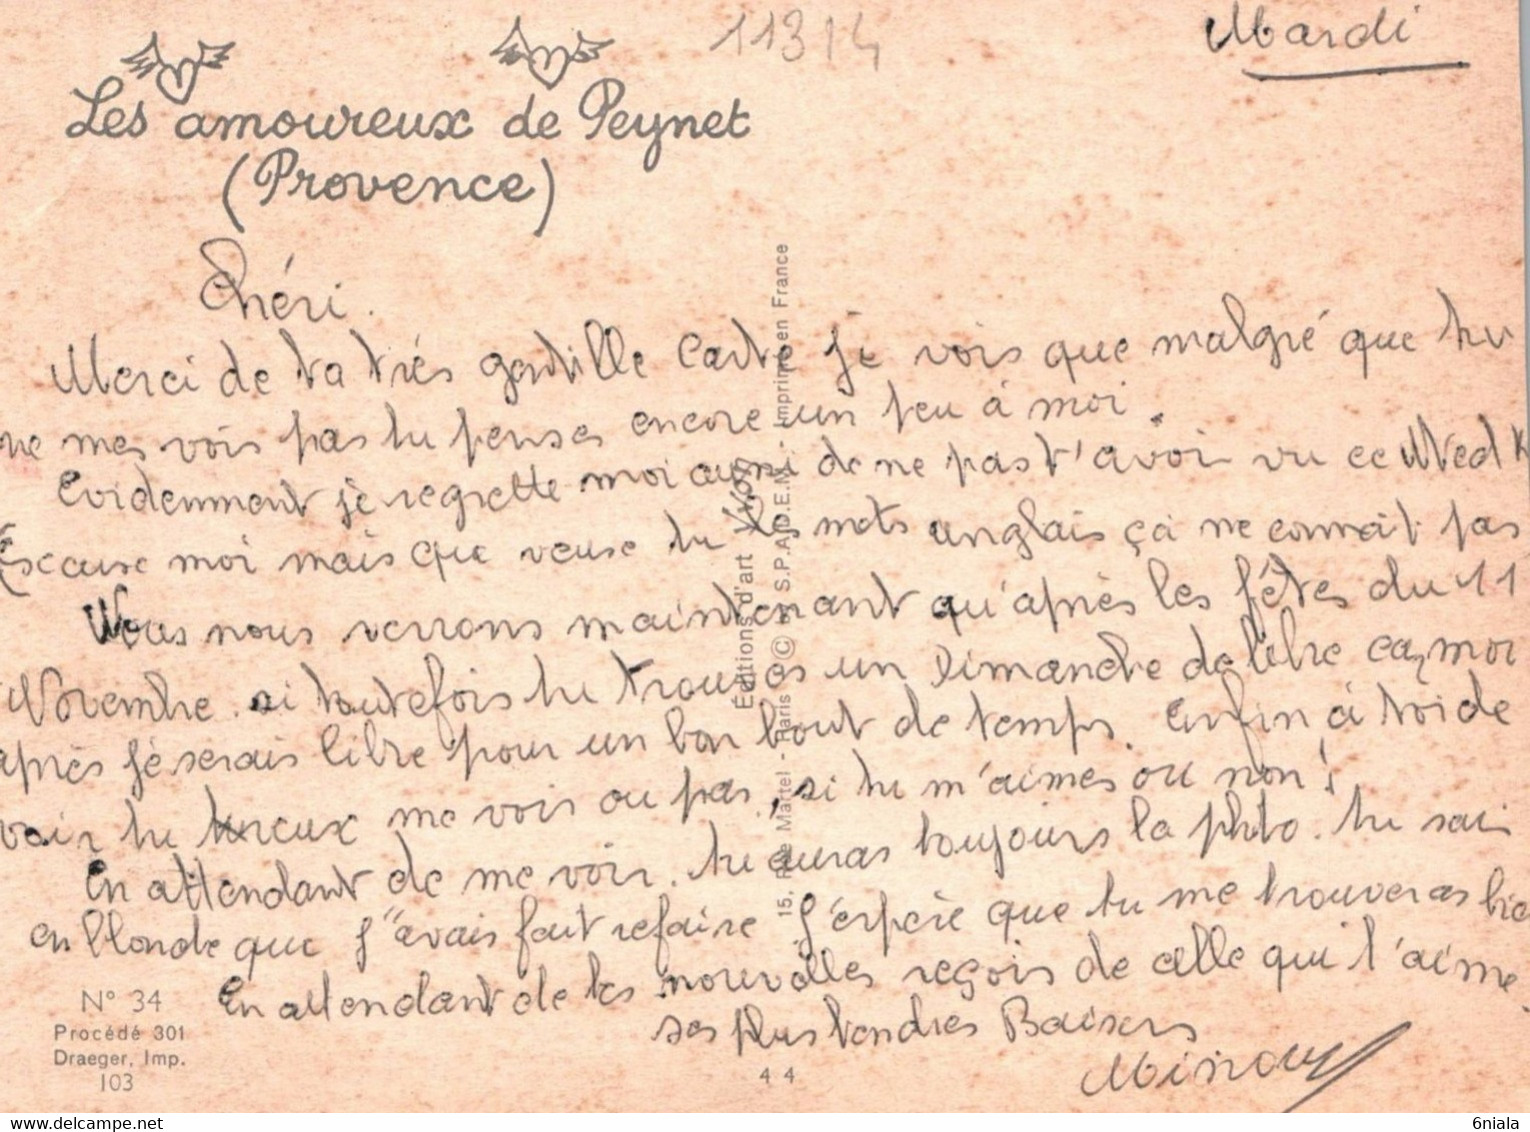 11314
Mardi
Les amoureux de Peynet
(Provence)
Chéri.
Merci de ta trés gentille carte je vois que malgré que tu
ne mes vois pas tu penses encore un peu à moi.
Evidemment je regrette moi aussi de ne pas t'avoir vu ce Wed K
Escause moi mais que veuse tu les mots anglais ça ne connait pas
Nous nous verrons maintenant qu'après les fêtes du 11
Novembre. si toutefois tu trouves un Dimanche de libre
après je serais libre pour un bon bout de temps. Enfin à toi de
voir tu veux me voir ou pas, si tu m'aimes ou non!
En attendant de me voir. tu auras toujours la phto. tu sai
en blonde que j'avais fait refaire j'espère que tu me trouveras bie
En attendant de tes nouvelles reçois de celle qui t'aime.
ses plus tendres Baisers
Minou
Éditions d'art Yvon
15, Rue Martel - Paris © by S.P.A.D.E.M. - Imprimé en France
N° 34
Procédé 301
Draeger, Imp.
103
44
delcampe.net
6niala